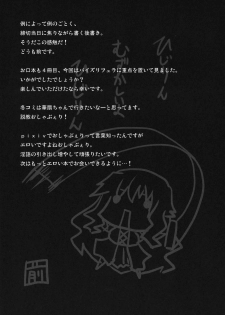 例によって例のごとく、
締切当日に焦りながら書く後書き。
そうだこの感触だ！
どうも前です。
お口本も４冊目、今回はパイズリフェラに重点を置いて見ました。
いかがでしたでしょうか？
楽しんでいただけたなら幸いです。
冬コミは華扇ちゃんで行きたいなーと思ってます。
説教おしゃぶり！
ｐｉｘｉｖでおしゃぶぇりって言葉知ったんですが
エロいですよねおしゃぶぇり。
淫語の引き出し増やして頑張りたいです。
次はもっとエロい本でお会いできるように…！
ひじりん
むずかしいよ
ひじりん
前